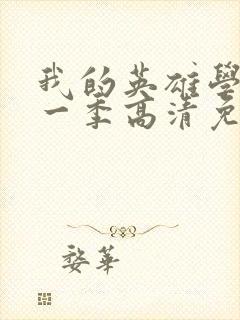 我的英雄學
一季高清免
婺華